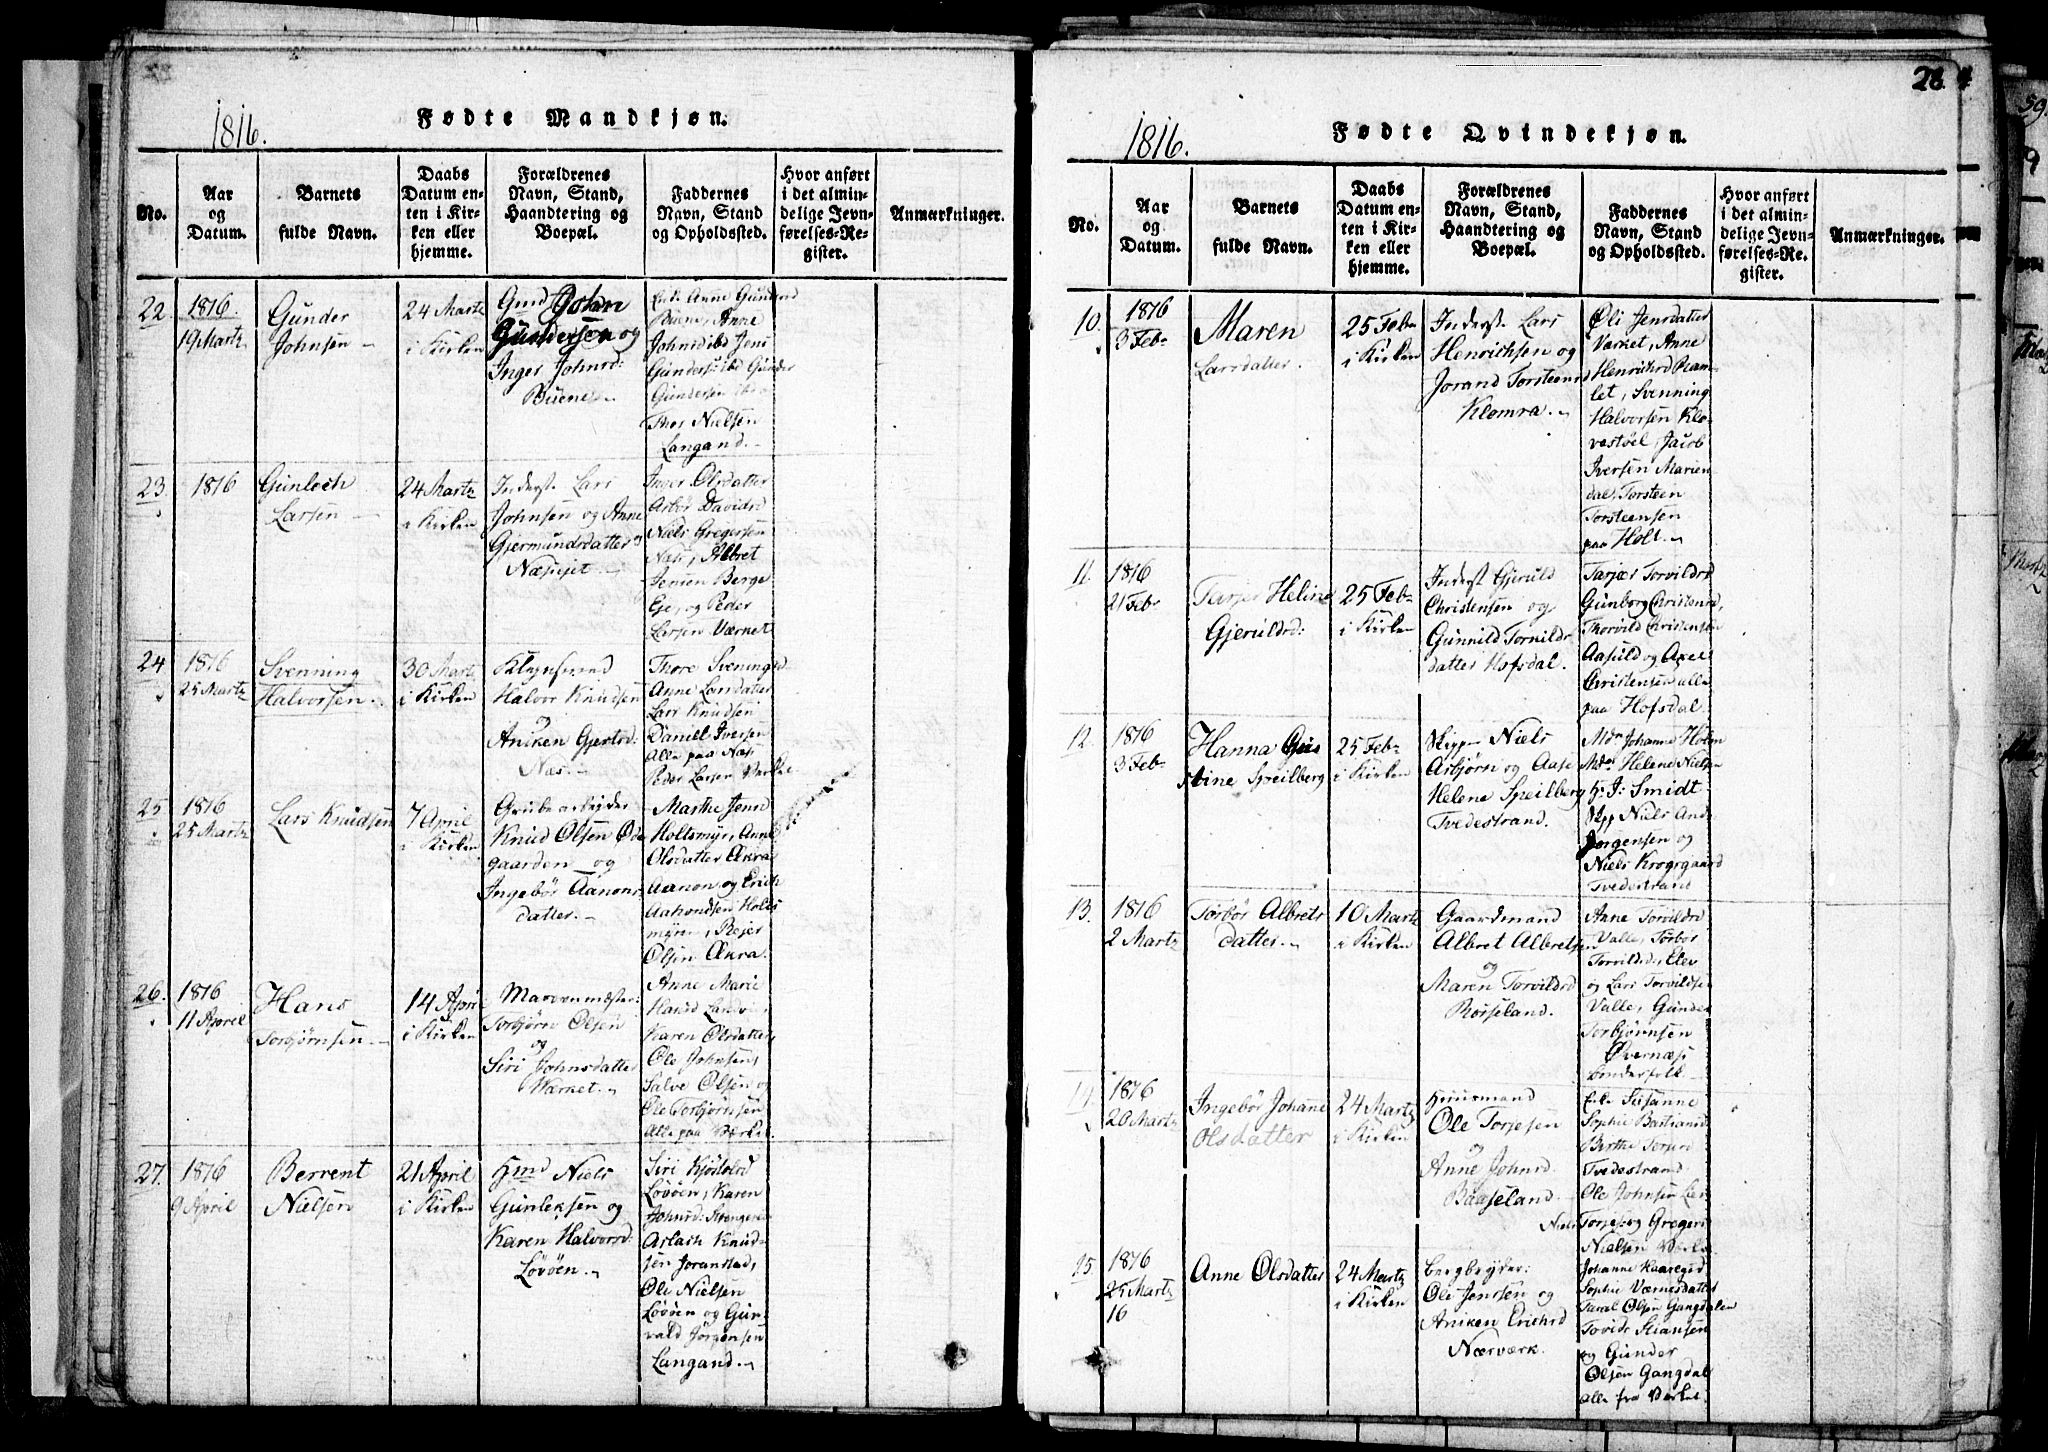 1816.
Fødte Mandkjøn.
No.
Aar
og
Datum.
Barnets
fulde Navn.
Daabs
Datum en-
ten i Kir-
ken eller
hjemme.
Forældrenes
Navn, Stand,
Haandtering og
Boepæl.
Faddernes
Navn, Stand
og Opholdssted.
Hvor anført
i det almin-
delige Jevn-
førelses-Re-
gister.
Anmærkninger.
22.
1816.
19 Martz
Gunder
Johnsen
24 Martz
i Kirken
Gmd John
Gundersen og
Inger Johnsd:
Buene
Enke Anne Gundersd
Buene, Anne
Johnsd ibd Jens
Gunders: ibd Gunder
Gundersen ibd
Thor Nielsen
Langand.
23.
1816
Gunlech
Larsen
24 Martz
i Kirken
Inderst Lars
Johnsen og Anne
Gjermundsdatter
Inger Olsdatter
Davidsd
Niels Gregersen
Næss, Albret
Jensen Berge
Eje, og Peder
Larsen Værket
24
1816
25 Martz
Svenning
Halvorsen
30 Martz
i Kirken
Halvor Knudsen
og
Aniken Gjertsd:
Næs
Thore Svenningsd
Anne Larsdatter
Lars Knudsen
Daniel Iversen
Alle paa Næs
Peder Larsen Værket
25
1816
25 Martz
Lars Knudsen
7 April
i Kirken
Grubearbejder
Knud Olsen Øde
gaarden og
Ingebør Aanons
datter.
Marthe Jensd
Holtsmyr, Anne
Olsdatter Ækra
Aanon og Erich
Aamondsen Holts
myren, Rejer
Olsen Ækra.
26.
1816
11 April
Hans
Torbjørnsen
14 April
i Kirken
Masovnmæster:
Torbjørn Olsen
og
Siri Johnsdatter
Værket.
Anne Marie
Karen Olsdatter,
Ole Johnsen,
Salve Olsen og
Ole Torbjørnsen
Alle paa Værket.
27.
1816
9 April
Berrent
Nielsen
21 April
i Kirken
Hmd Niels
Gunleksen og
Karen Halvorsd:
Løvøen.
Siri Kjøstolsd
Løvøen, Karen
Johnsd:
Aslach Knud-
sen Joranstad,
Ole Nielsen
Løvøen og Gun-
vald Jørgensen
Langand.
28
1816.
Fødte Qvindekjøn.
No.
Aar
og
Datum.
Barnets
fulde Navn.
Daabs
Datum en-
ten i Kir-
ken eller
hjemme.
Forældrenes
Navn, Stand,
Haandtering og
Boepæl.
Faddernes
Navn, Stand
og Opholdssted.
Hvor anført
i det almin-
delige Jevn-
førelses-Re-
gister.
Anmærkninger.
10.
1816
3 Febr
Maren
Larsdatter.
25 Febr
i Kirken
Inderst Lars
Henrichsen og
Jorand Torsteensd
Klomra.
Øli Jensdatter
Værket, Anne
Henrichsd Ram-
let, Svenning
Halvorsen Klo-
vestøel, Jacob
Iversen Marien
dal, Torsteen
Torsteensen
paa Holt.
11.
1816
21 Febr
Tarjer Heline
Gjeruldsd:
25 Febr
i Kirken
Inderst Gjeruld
Christensen og
Gunnild Torvilds
datter Hofsdal.
Tarjær Torvildsd
Gunborg Christensd,
Thorvild Christensen
Aasuld og Axel
Christensen alle
paa Hofsdal.
12.
1816
3 Febr
Hanna Gus
stine Speilberg
25 Febr
i Kirken
Skipper Niels
Asbjørn og Aase
Helene Speilberg
Tvedestrand.
Mdm Johanne Holm
Mdm Helene Nielsen
H: J: Smidt
Skpp Niels And
Jørgensen og
Niels Krogsgaard
Tvedestrand
13.
1816
2 Martz
Torbør Albrets
datter.
10 Martz
i Kirken
Gaardmand
Albret Albretsen
og
Maren Torvildsd
Røisseland.
Anne Torvildsd
Valle, Torbor
Torvildsd, Elev
og Lars Torvildse
Valle, Gunder
Torbjørnsen
Øvernæs
Bønderfolk.
14.
1816
20 Martz
Ingebør Johanne
Olsdatter
24 Martz
i Kirken
Huusmand
Ole Torjesen
og
Anne Johnsd.
Baaseland.
Enke Susanne
Sophie Bastiansd
Birthe Torjusd
Tvedestrand
Ole Johnsen
Niels Torjes og Gregers
Nielsen Værket
15.
1816
25 Martz
16
Anne Olsdatter
24 Martz
i Kirken
Bergbryder:
Ole Jensen og
Aniken Erichsd
Nærværk.
Johanne Kaaregsd
SophieVærnesdatter
Taral Olsen Gangdalen
Tovids Stiansen
og Gunder
Olsen Gangdal
alle fra Værket.